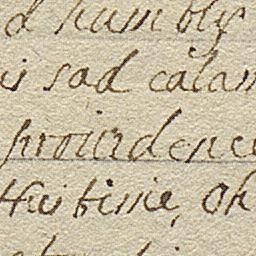 d humbly
is sad calam
providence
this time, oh